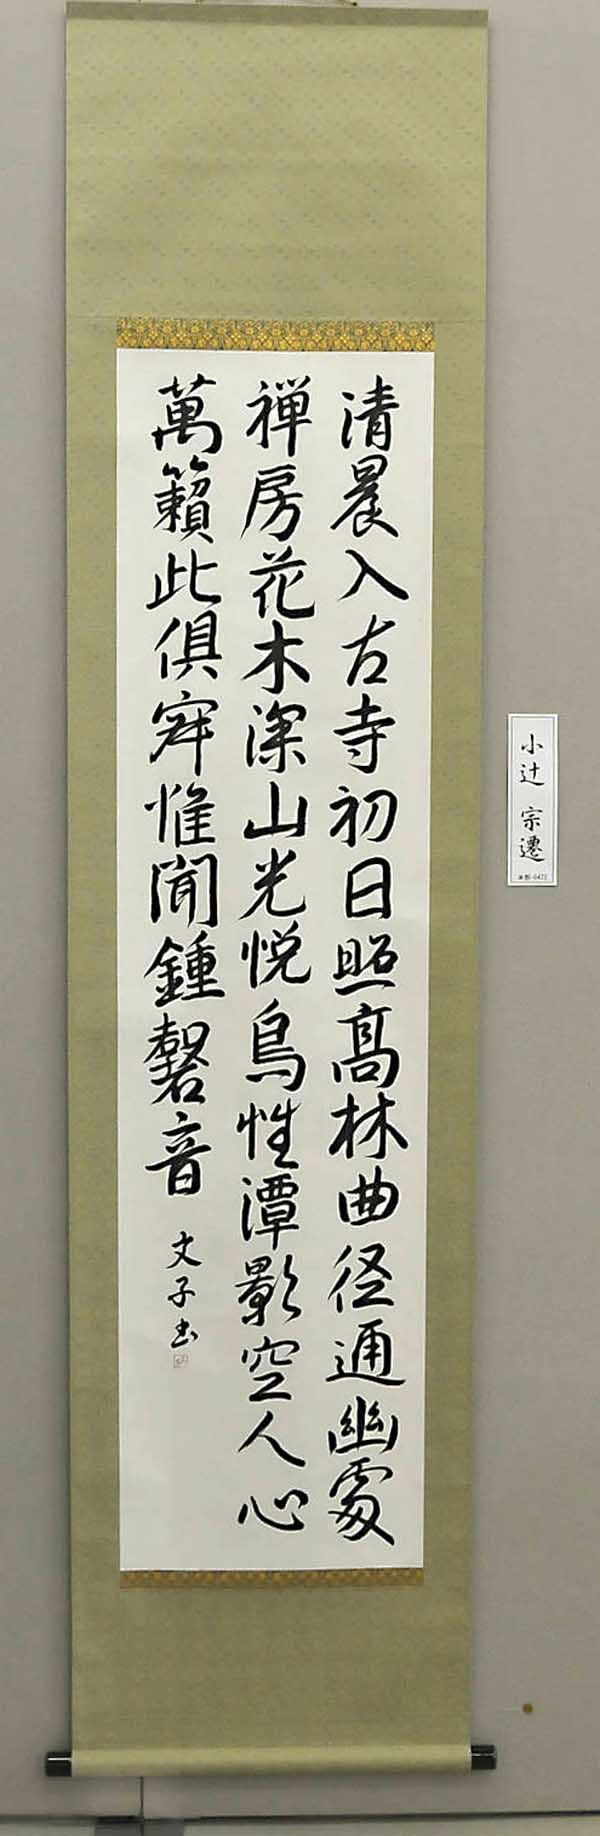 清晨入古寺初日照髙林曲径通幽處
禅房花木深山光悦鳥性潭影空人心
萬籟此俱寂惟聞鍾磬音
文子書
小辻 宗遷